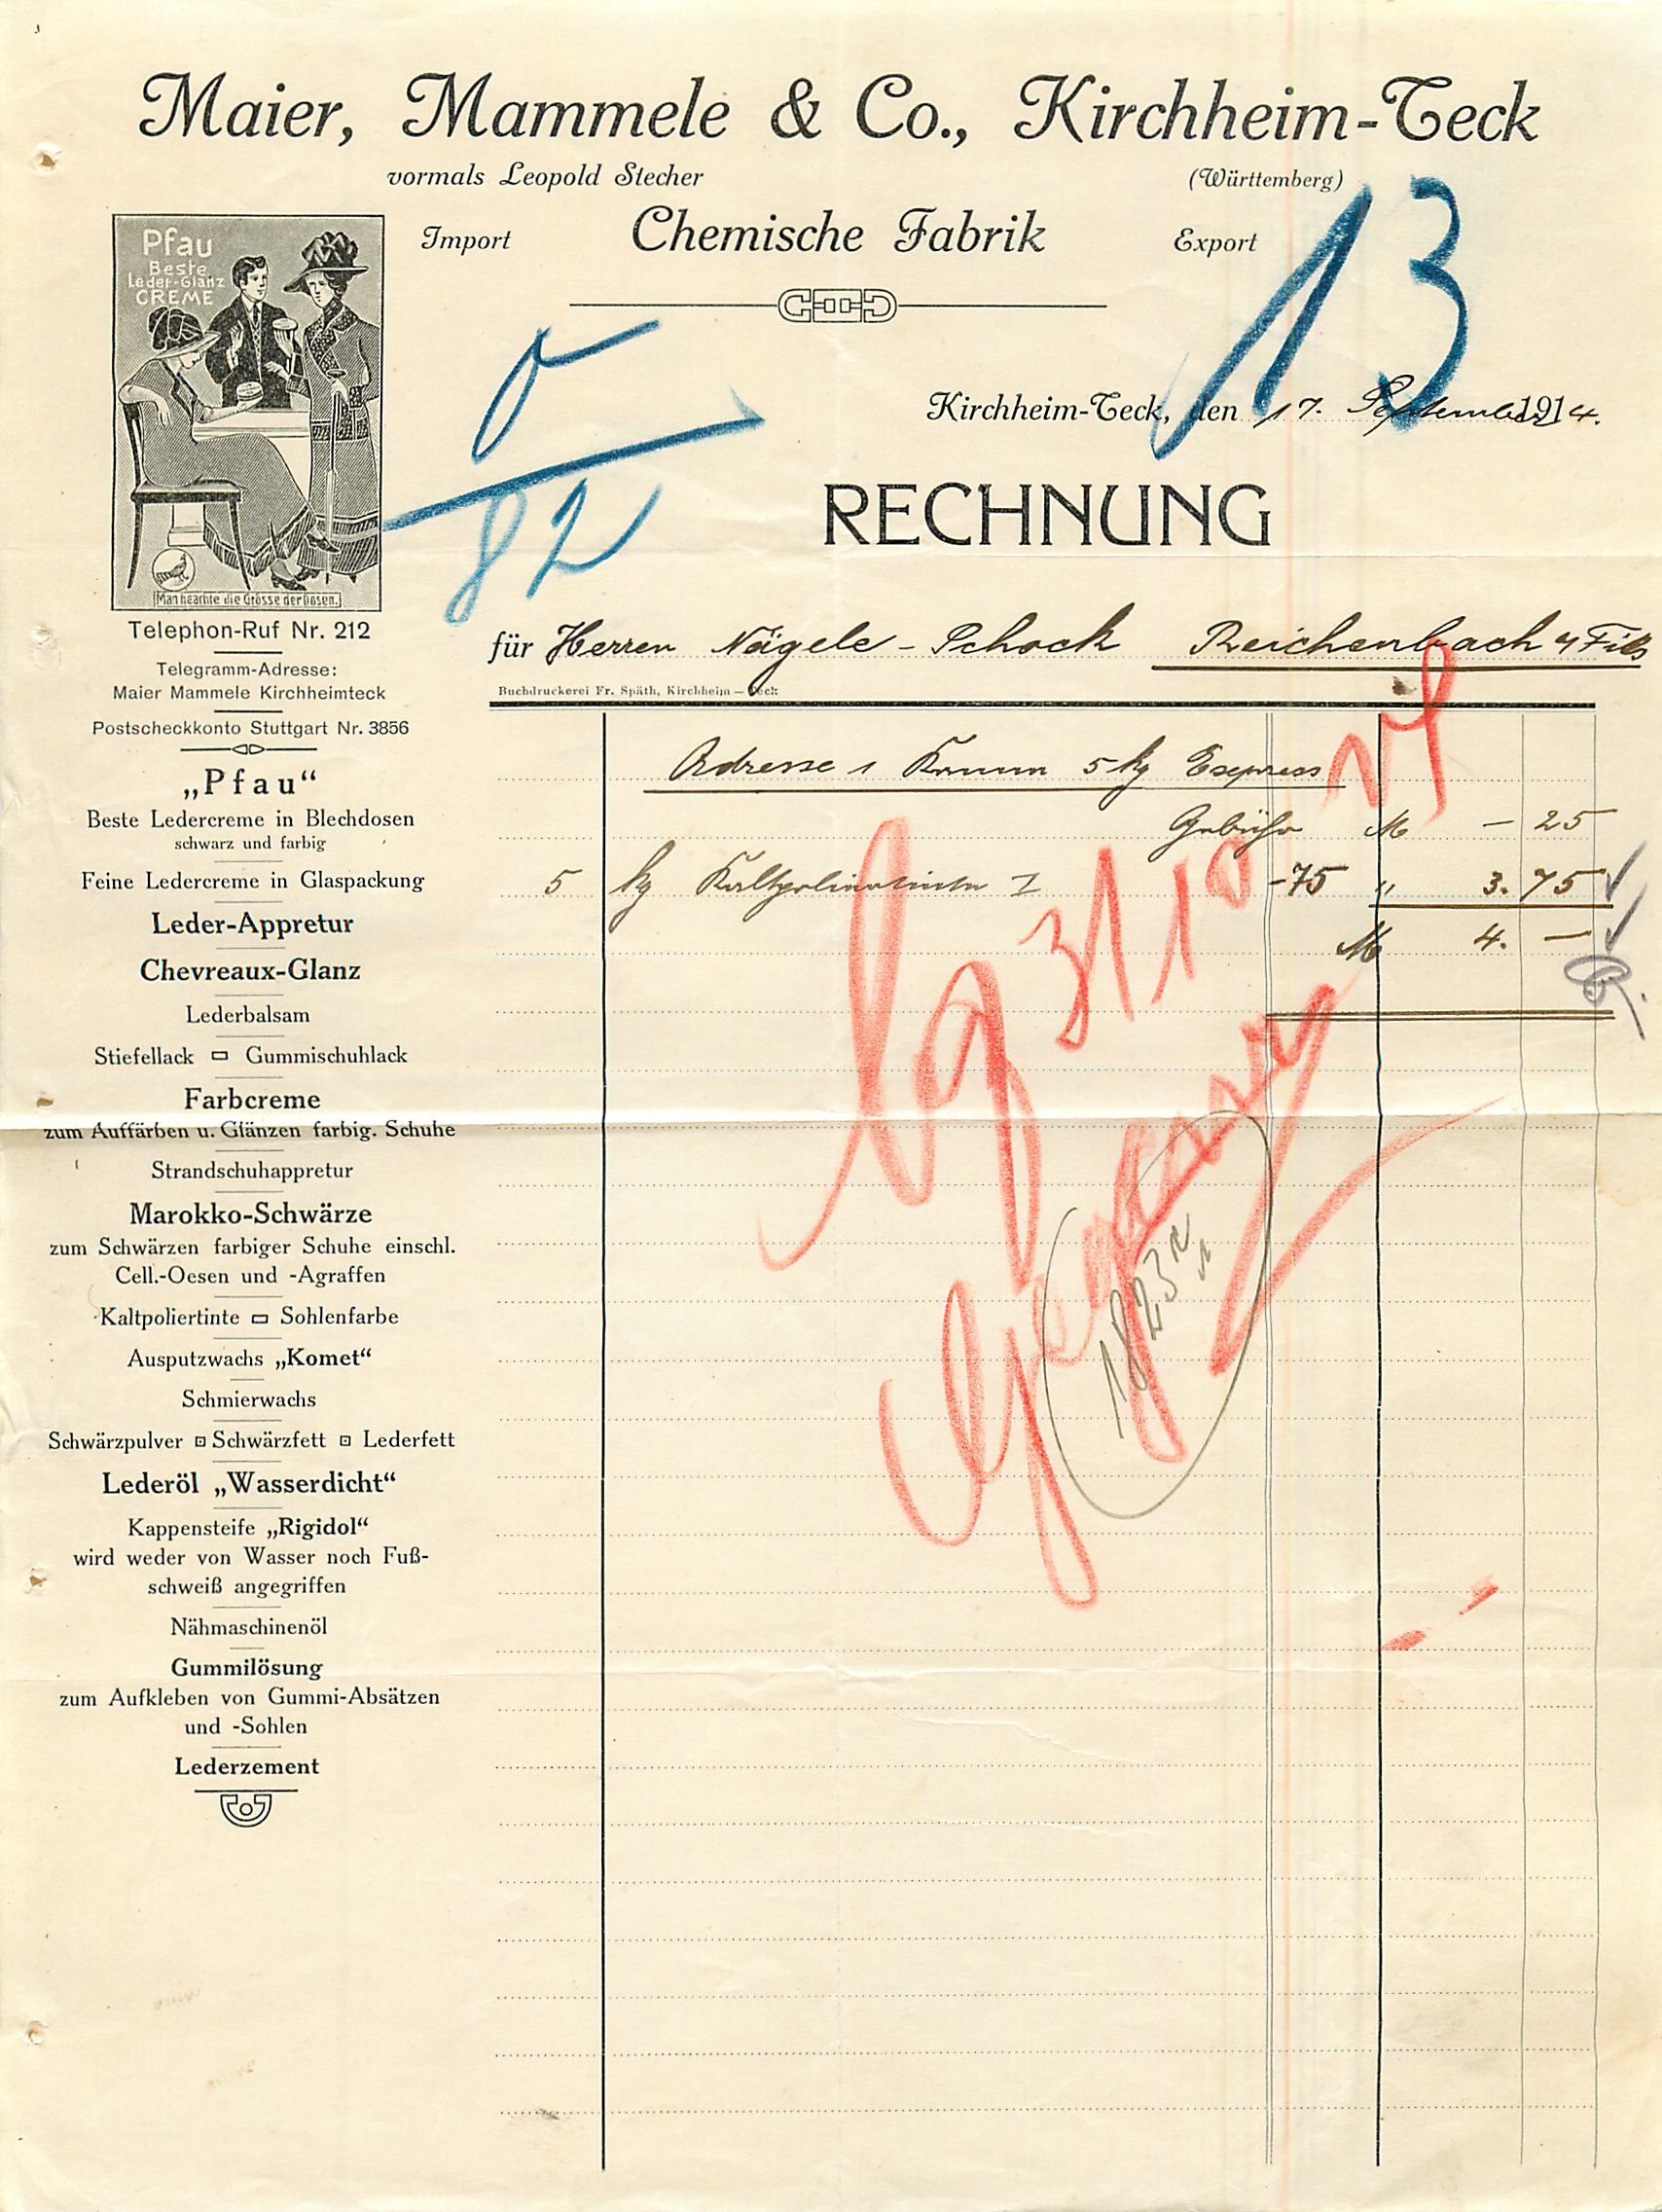 Maier, Mammele & Co., Kirchheim-Teck
vormals Leopold Stecher
(Württemberg)
Import
Chemische Fabrik
Export
13
Pfau
Beste
Leder-Glanz
CREME
Man beachte die Grösse der Dosen.
82
Kirchheim-Teck, den 17. September 1914.
RECHNUNG
für Herren Nägele - Schock Reichenbach a/Fils
Buchdruckerei Fr. Späth, Kirchheim-Teck
Telephon-Ruf Nr. 212
Telegramm-Adresse:
Maier Mammele Kirchheimteck
Postscheckkonto Stuttgart Nr. 3856
„Pfau“
Beste Ledercreme in Blechdosen
schwarz und farbig
Feine Ledercreme in Glaspackung
Leder-Appretur
Chevreaux-Glanz
Lederbalsam
Stiefellack Gummischuhlack
Farbcreme
zum Auffärben u. Glänzen farbig. Schuhe
Strandschuhappretur
Marokko-Schwärze
zum Schwärzen farbiger Schuhe einschl.
Cell.-Oesen und -Agraffen
Kaltpoliertinte Sohlenfarbe
Ausputzwachs „Komet“
Schmierwachs
Schwärzpulver Schwärzfett Lederfett
Lederöl „Wasserdicht“
Kappensteife „Rigidol“
wird weder von Wasser noch Fuß-
schweiß angegriffen
Nähmaschinenöl
Gummilösung
zum Aufkleben von Gummi-Absätzen
und -Sohlen
Lederzement
Adresse 1 5 kg Express
Gebühr M - 25
5 kg Kaltpoliertinte I -75 " 3. 75
M 4. -
31 10 14
1823